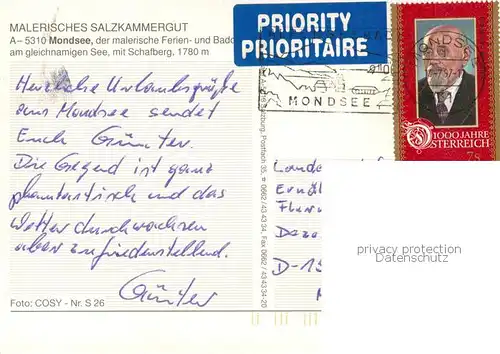 MALERISCHES SALZKAMMERGUT
A– 5310 Mondsee, der malerische Ferien- und Bade
am gleichnamigen See, mit Schafberg, 1780 m
Herzliche Urlaubsgrüße
aus Mondsee sendet
Euch Günter.
Die Gegend ist ganz
phantastisch und das
Wetter durchwachsen
aber zufriedenstellend.
Günter
Foto: COSY - Nr. S 26
PRIORITY
PRIORITAIRE
MONDSEE
MONDSEE
1000 JAHRE
ÖSTERREICH
7S
Salzburg, Postfach 35, 0662/43 43 34, Fax 0662/43 43 34-20
D-15
privacy protection
Datenschutz